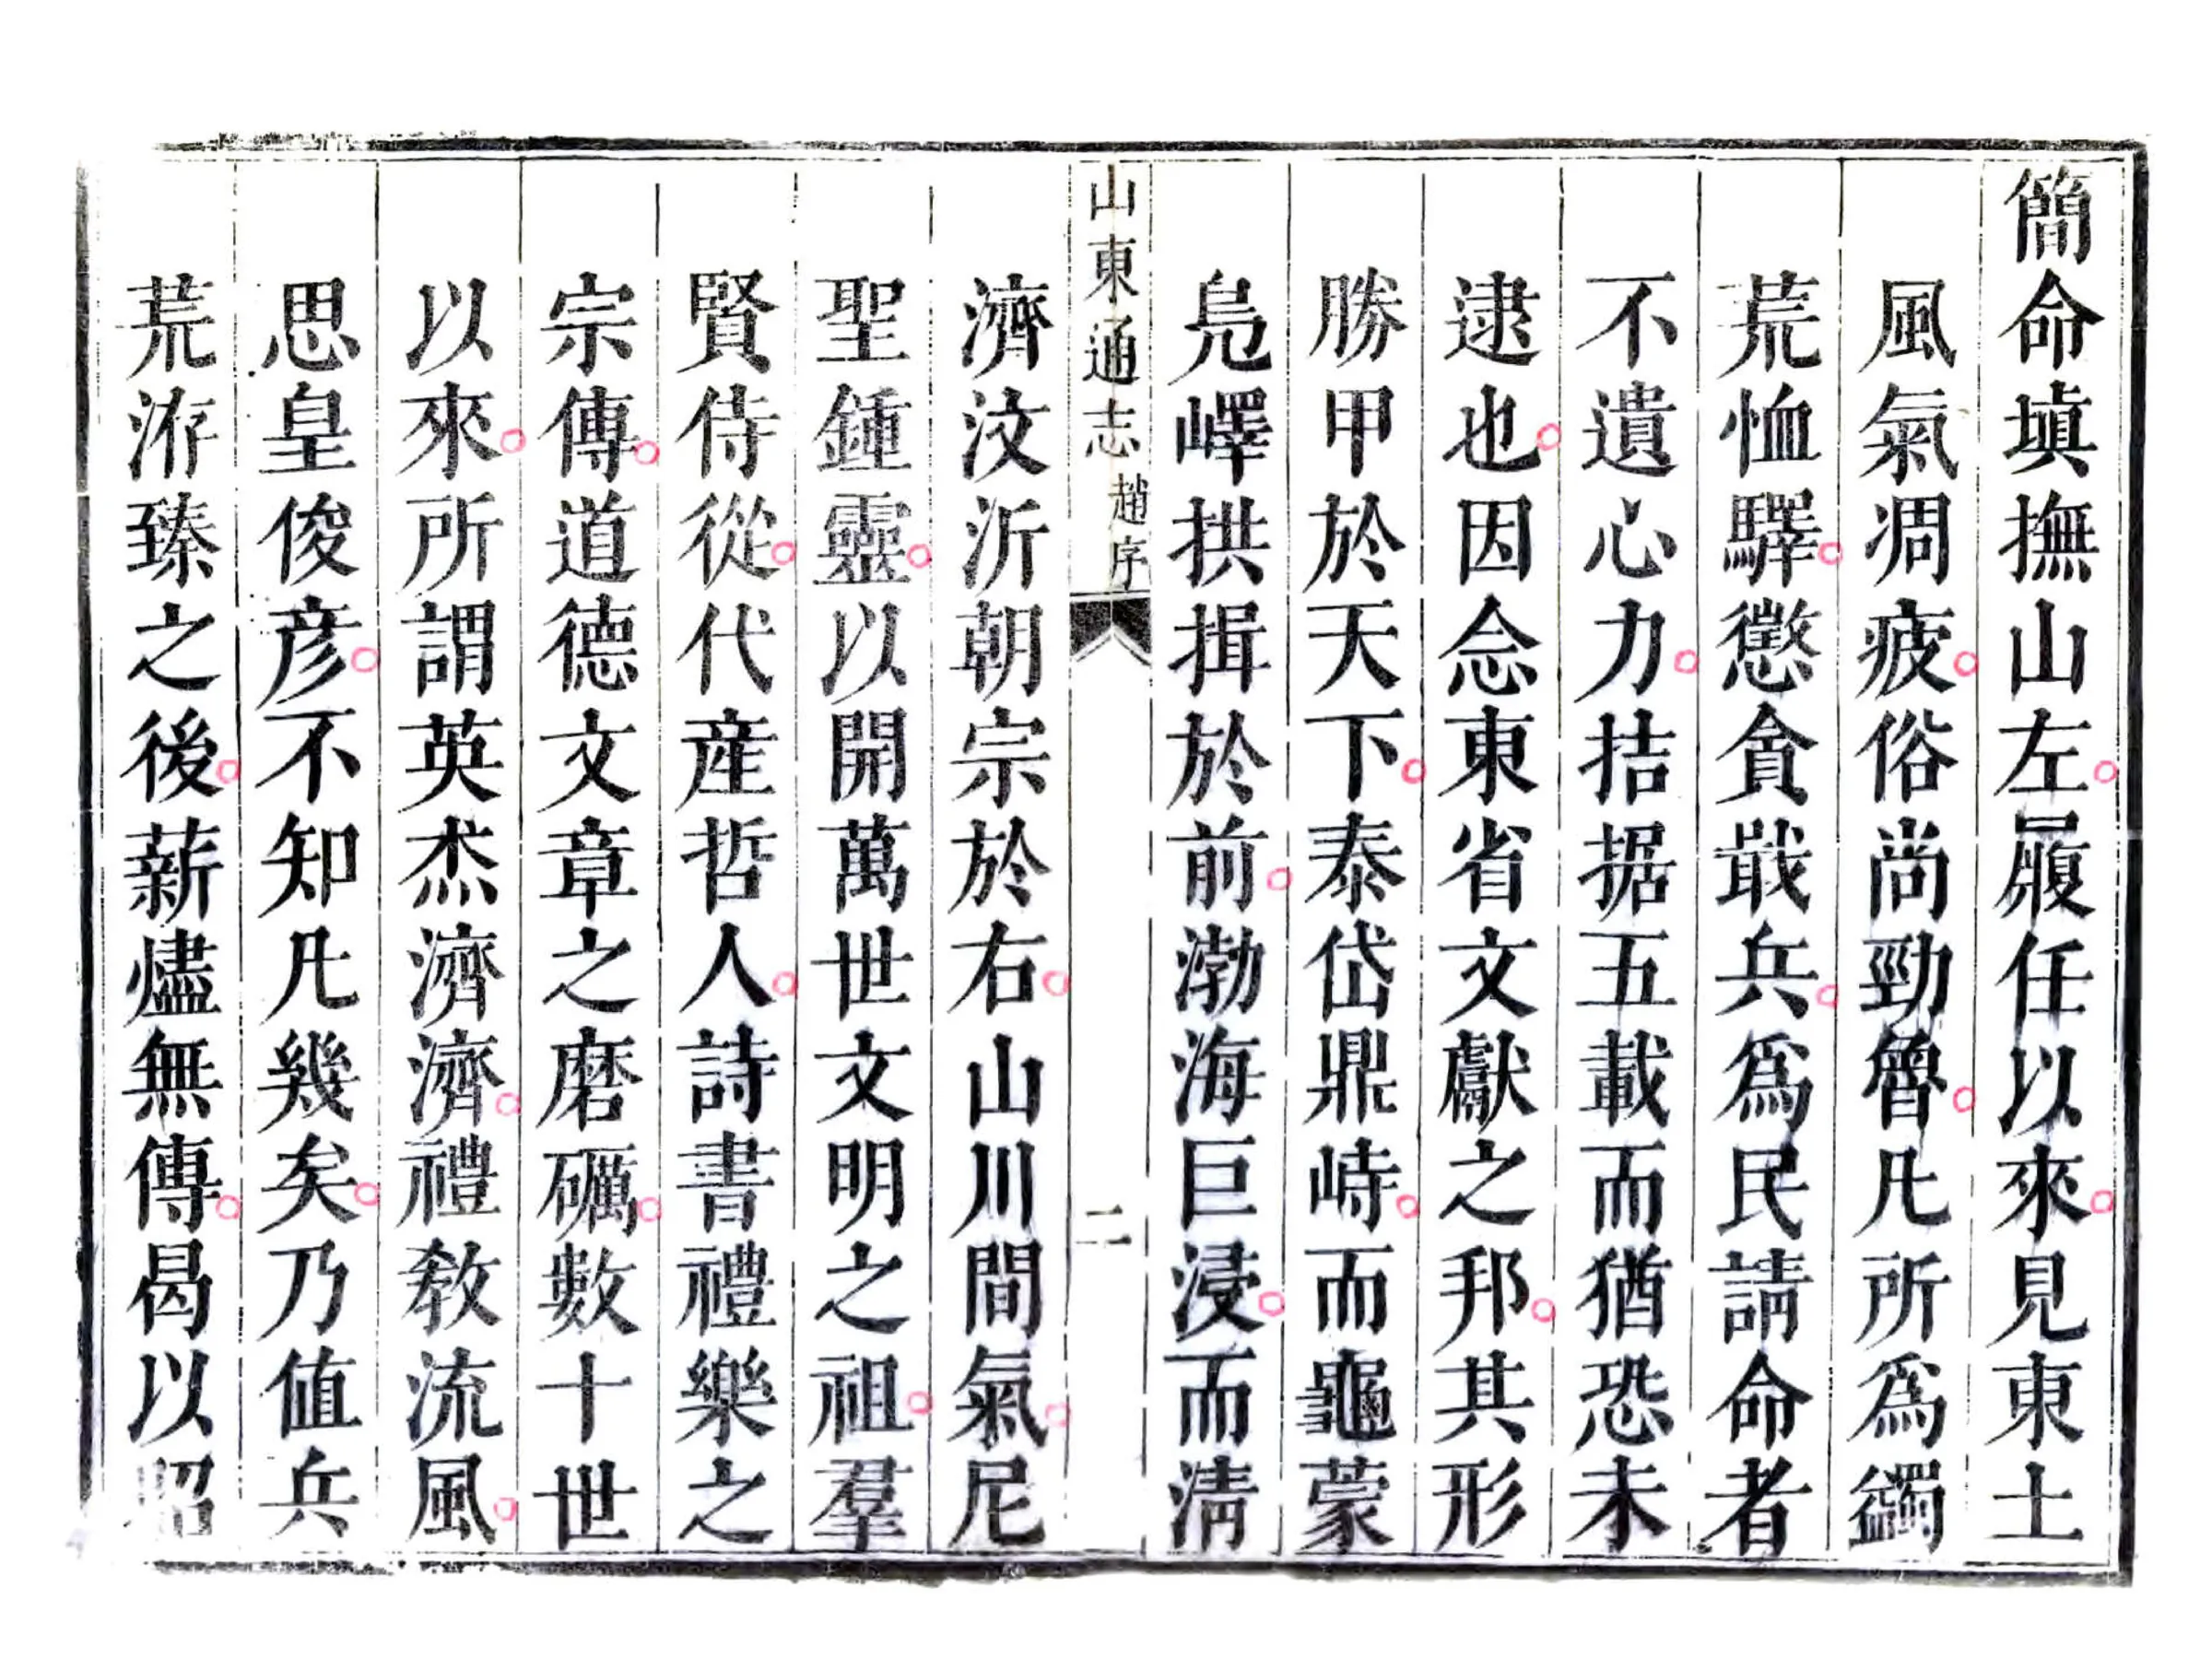 簡命塡撫山左。履任以來。見東土
風氣凋疲。俗尚勁魯。凡所爲蠲
荒恤驛。懲貪戢兵。爲民請命者
不遺心力。拮据五載而猶恐未
逮也。因念東省文獻之邦。其形
勝甲於天下。泰岱鼎峙。而龜蒙
鳧嶧拱揖於前。渤海巨浸。而淸
山東通志 趙序 二
濟汶沂朝宗於右。山川間氣。尼
聖鍾靈。以開萬世文明之祖。羣
賢侍從。代產哲人。詩書禮樂之
宗傳。道德文章之磨礪。數十世
以來。所謂英杰濟濟。禮敎流風。
思皇俊彦。不知凡幾矣。乃値兵
荒洊臻之後。薪燼無傳。曷以昭